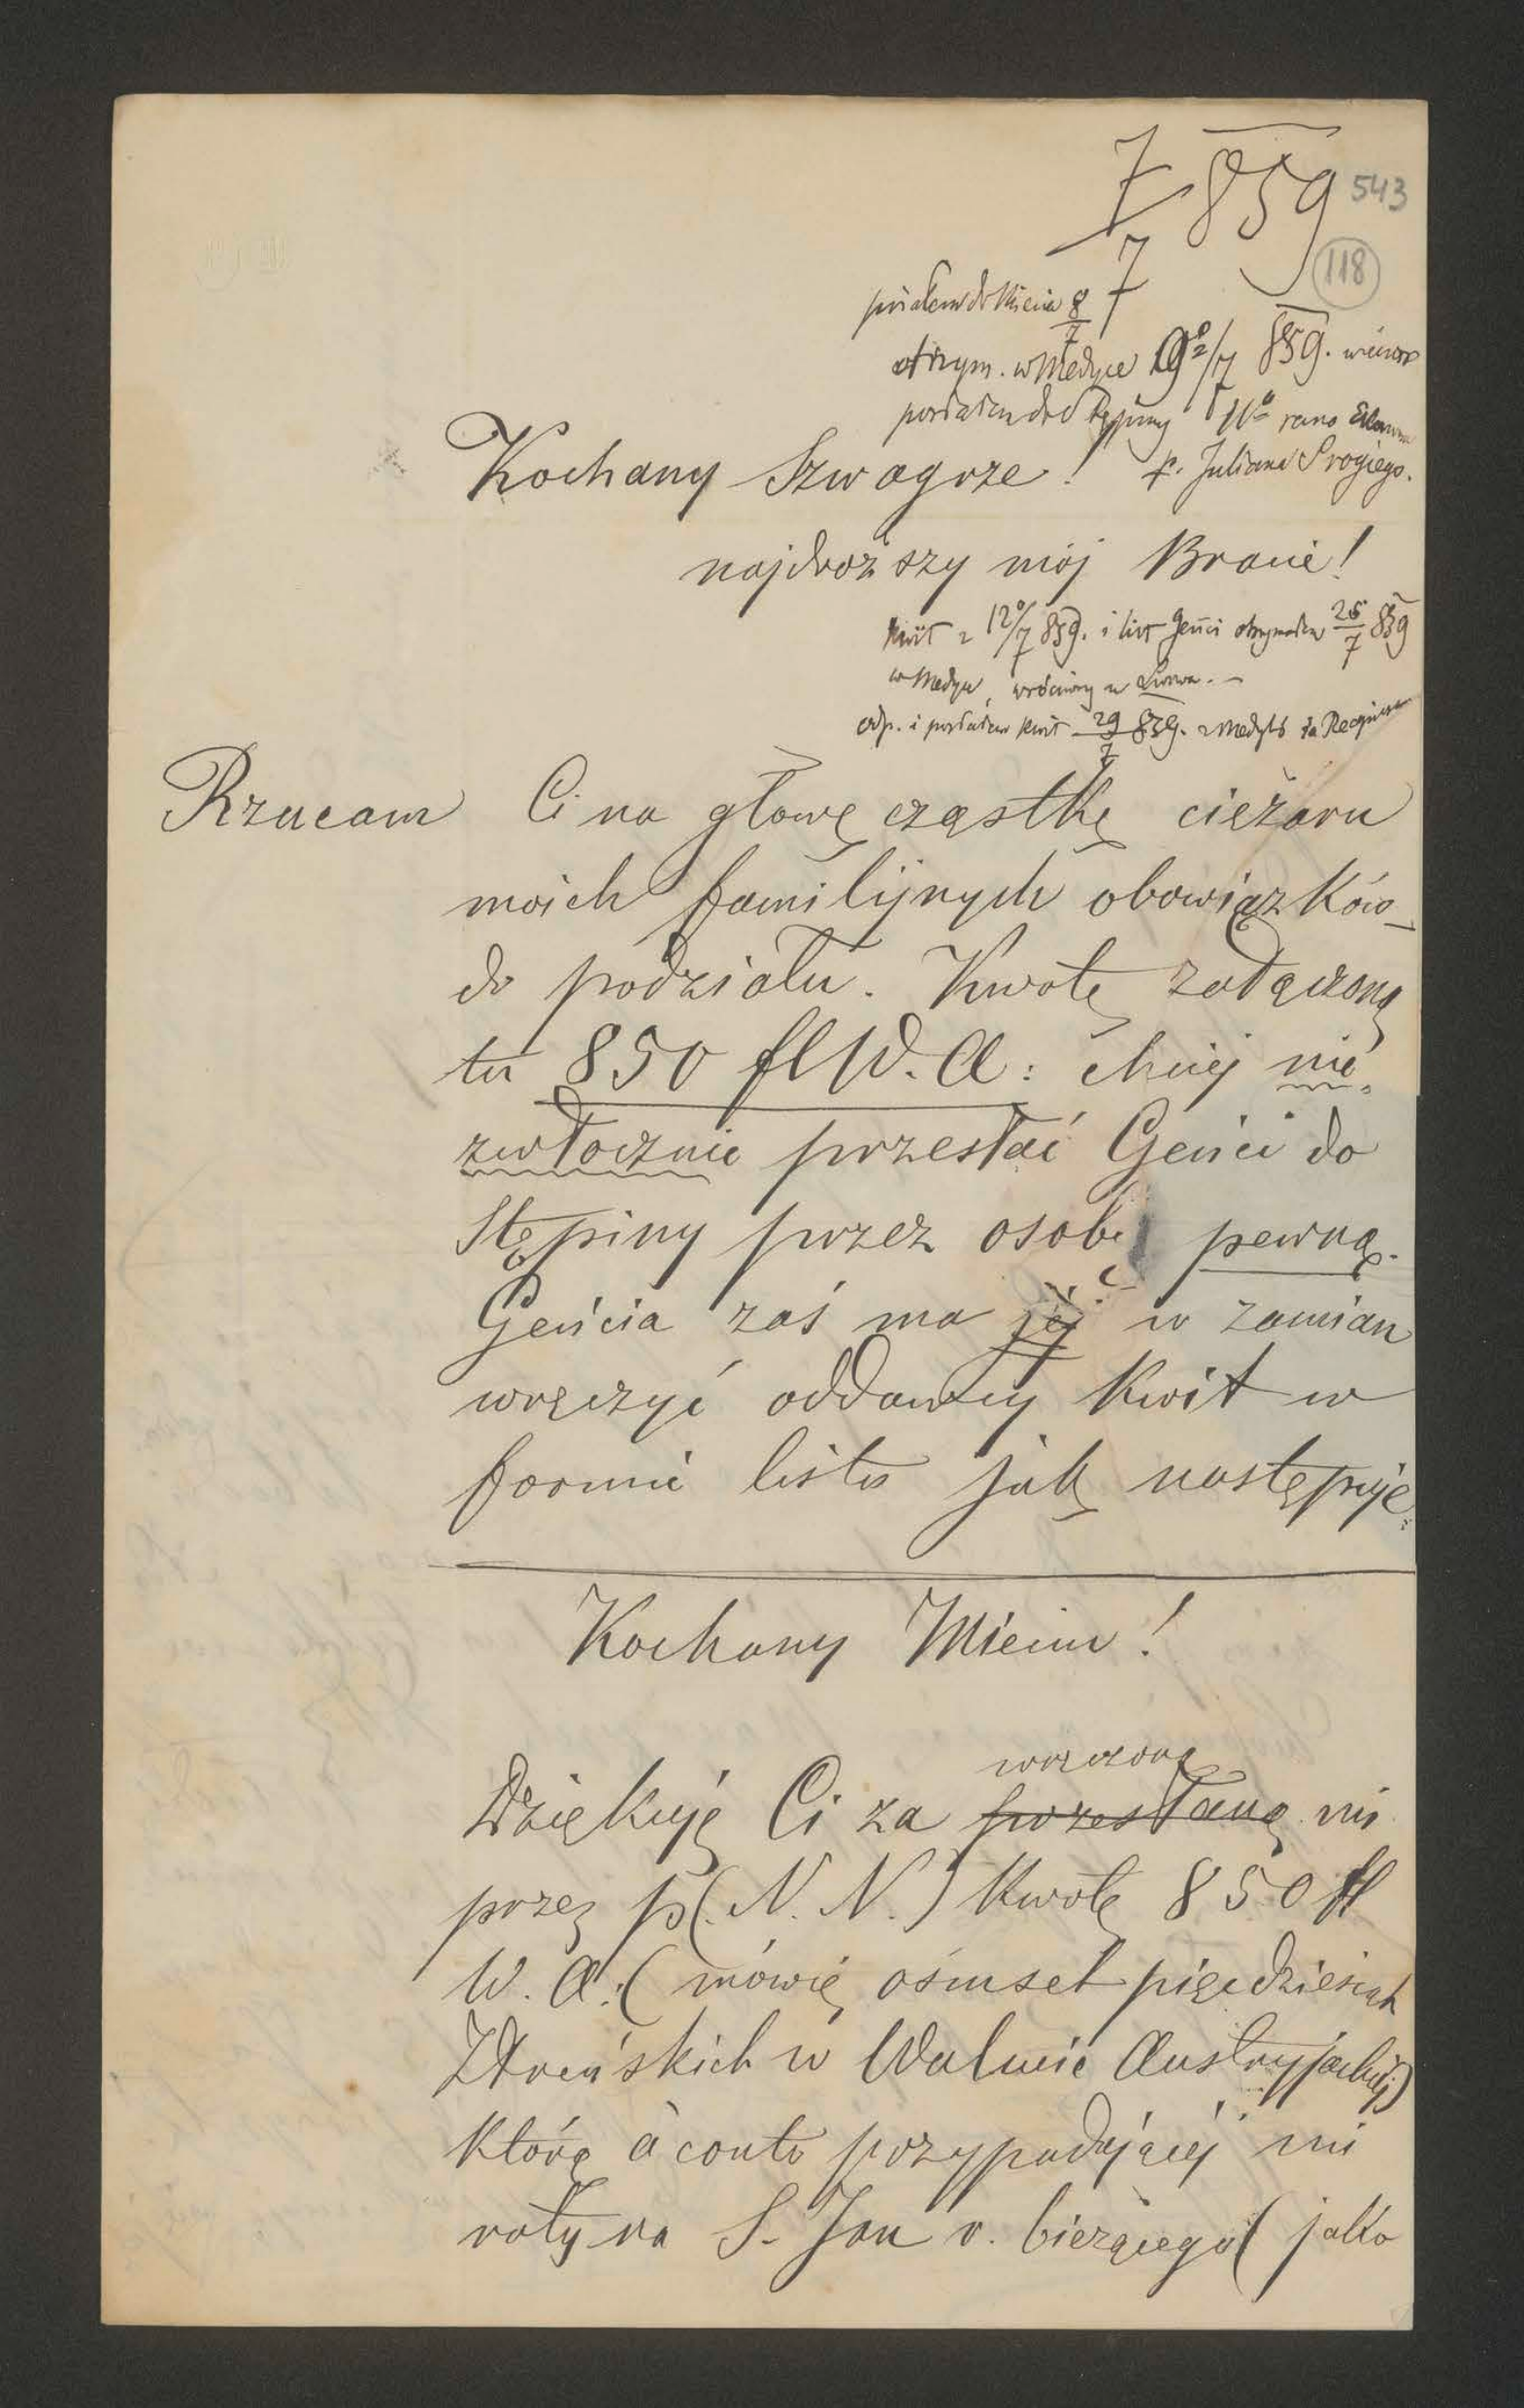 7/7 859
543
118
pisałem do Miecia 8/7
otrzym. w Medyce 9/7 859. wieczór
posłałem do Stępiny rano
p. Juliana Srogiego.
Kochany Szwagrze!
najdroższy mój Bracie!
Kwit z 12/7 859. i list Geńci otrzymałem 26/7 859
w Medyce, wróciwszy ze Lwowa. –
odp. i posłałem kwit 29/7 859. z Medyki za Recepisem
Rzucam Ci na głowę cząstkę ciężaru
moich familijnych obowiązków
do podziału. Kwotę załączoną
tu 850 fl W. A: chciej nie
zwłocznie przesłać Geńci do
Stępiny przez osobę pewną.
Geńcia zaś ma jej w zamian
wręczyć oddawcy kwit w
formie listu jak następuje:
Kochany Mieciu!
wręczoną
Dziękuję Ci za przesłaną mi
przez p (N. N.) kwotę 850 fl
W. A: (mówię ośmset pięćdziesiąt
Złreńskich w Walucie Austryjackiej)
którą à conto przypadającej mi
raty na S. Jan r. bieżącego (jako